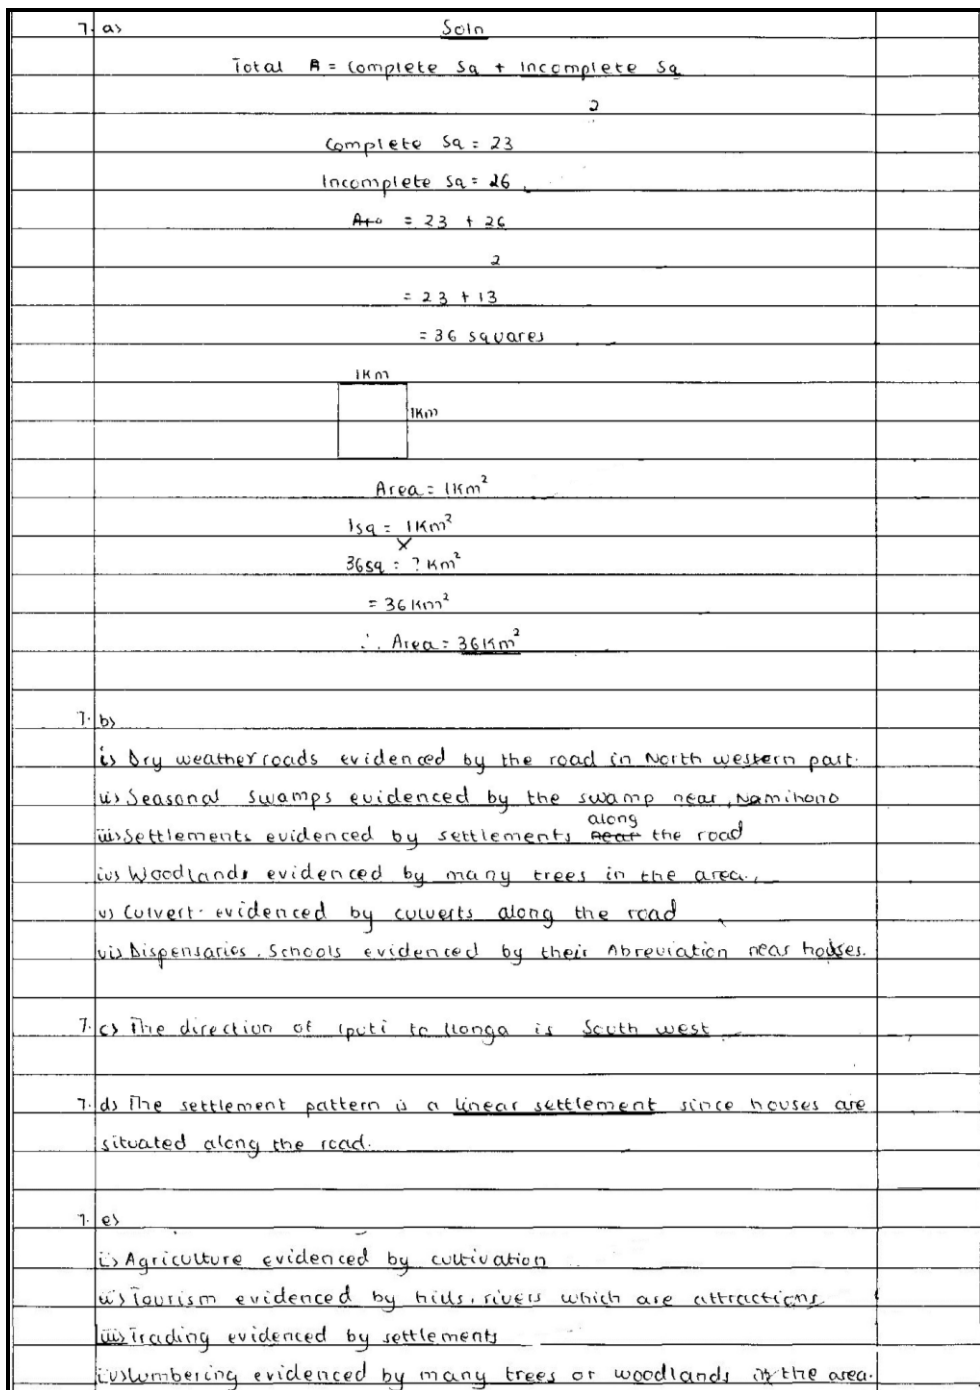 7. a) Soln
Total A = Complete Sq + Incomplete Sq
2
Complete Sq = 23
Incomplete Sq = 26
Are = 23 + 26
2
= 23 + 13
= 36 squares
1Km
1Km
Area = 1Km²
1sq = 1Km²
36sq = ? Km²
= 36Km²
∴ Area = 36Km²
7. b)
i) Dry weather roads evidenced by the road in North western part.
ii) Seasonal swamps evidenced by the swamp near, Namihono
along
iii) Settlements evidenced by settlements near the road
iv) Woodlands evidenced by many trees in the area.
v) Culvert. evidenced by culverts along the road
vi) Dispensaries, Schools evidenced by their Abreviation near houses.
7. c) The direction of Iputi to Ilonga is South west
7. d) The settlement pattern is a linear settlement since houses are
situated along the road.
7. e)
i) Agriculture evidenced by cultivation
ii) Tourism evidenced by hills, rivers which are attractions
iii) Trading evidenced by settlements
iv) Lumbering evidenced by many trees or woodlands in the area.